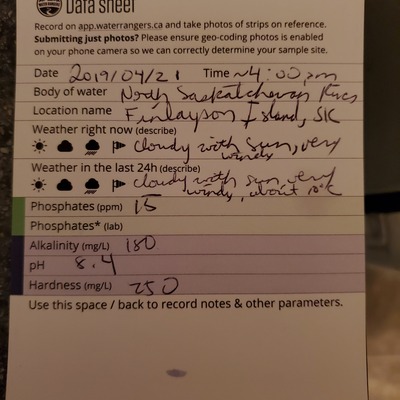 Data sheet
Record on app.waterrangers.ca and take photos of strips on reference.
Submitting just photos? Please ensure geo-coding photos is enabled
on your phone camera so we can correctly determine your sample site.
Date 2019/04/21 Time ~4:00pm
Body of water North Saskatchewan River
Location name Finlayson Island, SK
Weather right now (describe)
cloudy with sun, very
windy
Weather in the last 24h (describe)
cloudy with sun, very
windy, about 10°C
Phosphates (ppm) 15
Phosphates* (lab)
Alkalinity (mg/L) 180
pH 8.4
Hardness (mg/L) 250
Use this space / back to record notes & other parameters.